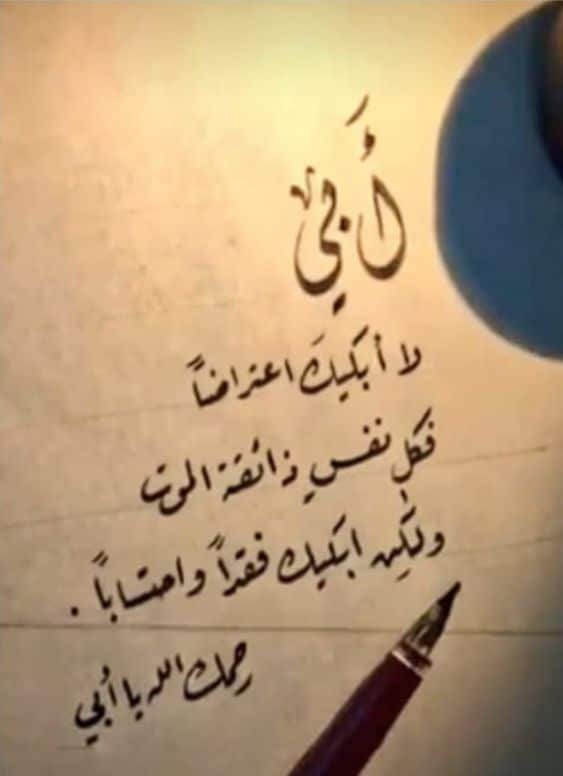 أَبي
لا أبكيكَ اعتراضاً
فكل نفسٍ ذائقة الموت
ولكِن ابكيك فقداً واحتساباً .
رحمك الله يا أبي